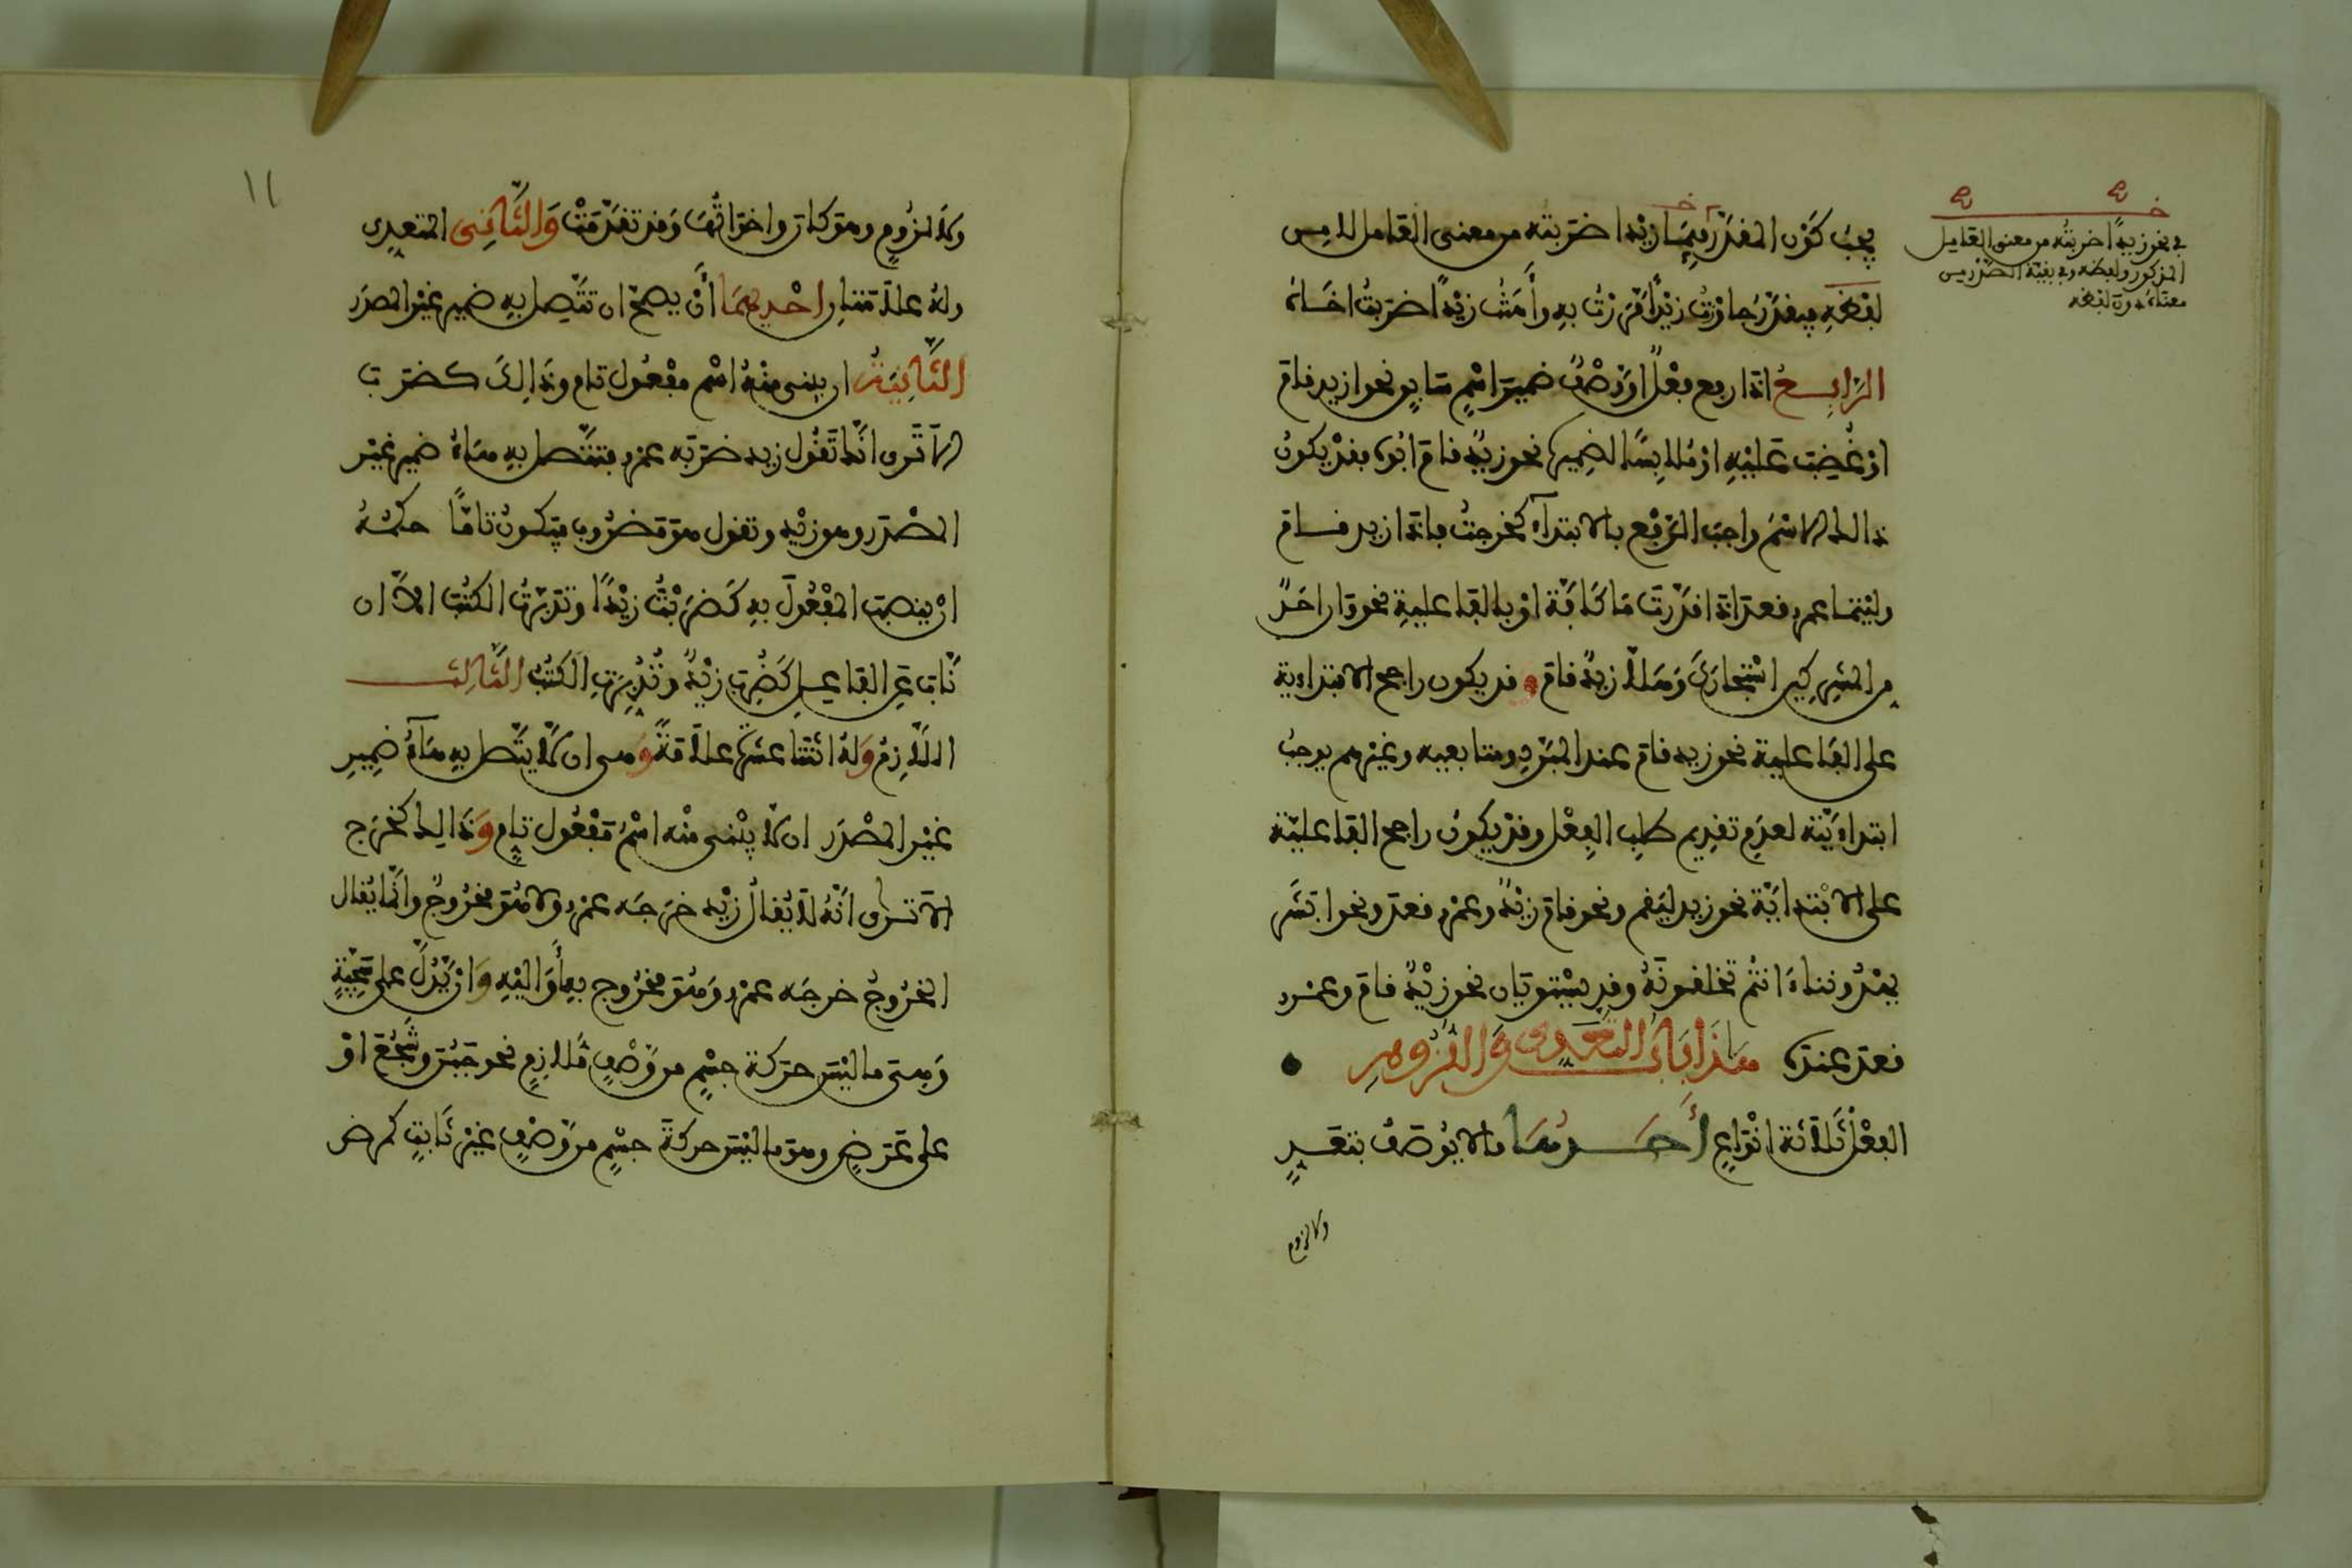 يجب كون المقدر فيما زيدا ضربته من معنى العامل لا من
لفظه فيقدر جاوزت زيدا مررت به وأهنت زيدا ضربت اخاه
الرابع اذا رفع فعل او وصف ضمير اسم سابق نحو ازيد قام
او غضب عليه او ملابسا لضميره نحو زيد قام ابوه فقد يكون
ذالك الاسم واجب الرفع بالابتداء كخرجت فاذا زيد قام
وليتما عمرو قعد اذا قدرت ما كافة او بالفاعلية نحو وان احد
من المشركين استجارك وهلا زيد قام وقد يكون راجح الابتداءية
على الفاعلية نحو زيد قام عند المبرد ومتابعيه وغيرهم يوجب
ابتداءيته لعدم تقديم طلب الفعل وقد يكون راجح الفاعلية
على الابتداية نحو زيد ليقم ونحو قام زيد وعمرو قعد ونحو ابشر
يهدوننا ءانتم تخلقونه وقد يستويان نحو زيد قام وعمرو
قعد عنده هذا باب التعدي واللزوم
الفعل ثلاثة انواع أحدها ما لا يوصف بتعد
ولا لزوم
في نحو زيدا ضربته من معنى العامل
المذكور ولفظه وفي بقية الصور من
معناه دون لفظه
١١
ولا لزوم وهو كان واخواتها وقد تقدمت والثاني المتعدي
وله علامتان احديهما أن يصح ان تتصل به ضمير غير المصدر
الثانية ان يبنى منه اسم مفعول تام وذالك كضرب
الا ترى انك تقول زيد ضربه عمرو فتتصل به هاء ضمير غير
المصدر وهو زيد وتقول هو مضروب فيكون تاما حكمه
ان ينصب المفعول به كضربت زيدا وتدبرت الكتب الا ان
ناب عن الفاعل كضرب زيد وتدبرت الكتب الثالث
اللازم وله اثنتا عشرة علامة وهي ان لا يتصل به هاء ضمير
غير المصدر ان لا يبنى منه اسم مفعول تام وذالك كخرج
الا ترى انه لا يقال زيد خرجه عمرو ولا هو مخروج وانما يقال
الخروج خرجه عمرو وهو مخروج به أو اليه وان يدل على سجية
وهي ما ليس حركة جسم من وصف ملازم نحو جبن وشجع او
على عرض وهو ما ليس حركة جسم من وصف غير ثابت كمرض